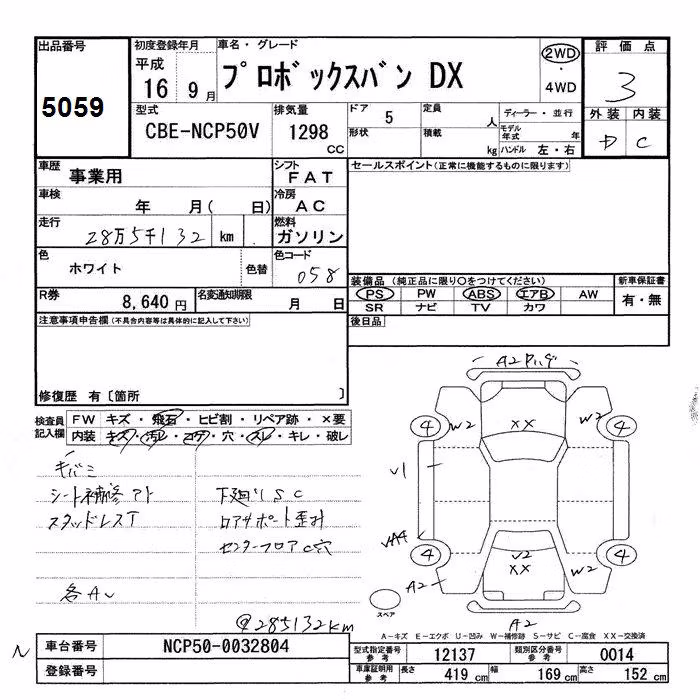 出品番号 初度登録年月 車名・グレード 2WD 評価点
5059 平成 16 9月 プロボックスバン DX ・ 4WD 3
型式 排気量 ドア 5 定員 人 ディーラー・並行 外装 内装
CBE-NCP50V 1298 cc 形状 積載 kg モデル年式 年 ハンドル 左・右 D C
車歴 事業用 シフト FAT セールスポイント(正常に機能するものに限ります)
車検 年 月( 日) 冷房 AC
走行 28万5千132 km 燃料 ガソリン
色 ホワイト 色替 色コード 058
装備品 (純正品に限り○をつけてください) 新車保証書
PS PW ABS エアB AW 有・無
SR ナビ TV カワ
R券 8,640円 名変通知期限 月 日
注意事項申告欄(不具合内容等は具体的に記入して下さい) 後日品
修復歴 有〔箇所 〕
検査員記入欄 FW キズ・飛石・ヒビ割・リペア跡・×要
内装 キズ・汚レ・コゲ・穴・スレ・キレ・破レ
キバミ
シート補修アト 下廻りSC
スタッドレスT ロアサポート歪み
センターフロアC穴
各A
@285132km
A2
4 W2 XX W2 4
V1
4 V2 XX W2 4
A2
スペア
A2
A-キズ E-エクボ U-凹み W-補修跡 S-サビ C-腐食 XX-交換済
N 車台番号 NCP50-0032804 型式指定番号 参考 12137 類別区分番号 参考 0014
登録番号 車庫証明用 参考 長さ 419 cm 幅 169 cm 高さ 152 cm